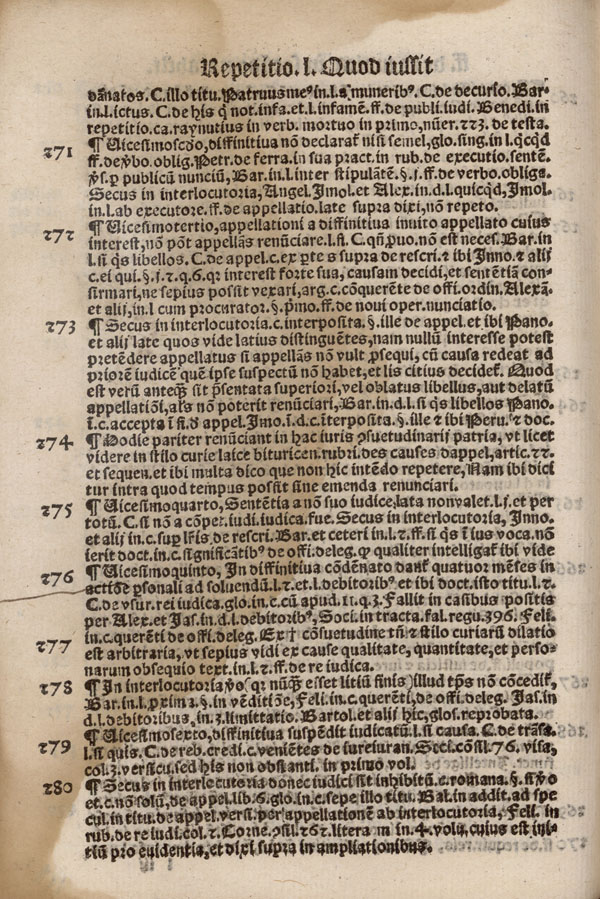 Repetitio. l. Quod iussit
dānatos. C. illo titu. Patruus meꝰ in. l. muneribꝰ. C. de decurio. Bar.
in l. ictus. C. de his q̄ not. infa. et. l. infamē. ff. de publi. iudi. Benedi. in
repetitio. ca. raynutius in verb. mortuo in primo, nūer. 223. de testa.
271 ¶ Uicesimoscd̄o, diffinitiua nō declaraƭ nisi semel, glo. sing. in l. qcqd
ff. de v̄bo. oblig. Petr. de ferra. in sua pract. in rub. de executio. sentē.
v̄s. p̱ publicū nunciū, Bar. in l. inter stipulātē. §. j. ff. de verbo. obliga.
Secus in interlocutoria, Angel. Jmol. et Alex. in. d. l. quicqd, Jmol.
in. l. ab executore. ff. de appellatio. late supra dixi, nō repeto.
272 ¶ Uicesimotertio, appellationi a diffinitiua inuito appellato cuius
interest, nō pōt appellās renūciare. l. fi. C. qn̄ ꝓuo. nō est neces. Bar. in
l. si q̄s libellos. C. de appel. c. ex ꝑte s supra de rescri. et ibi Inno. et alij
c. ei qui. §. j. 2. q. 6. qr interest forte sua, causam decidi, et sentētiā con-
firmari, ne sepius possit vexari, arg. c. cōquerēte de offi. ordin. Alexā.
et alij, in l. cum procurator. §. p̄mo. ff. de noui oper. nunciatio.
273 ¶ Secus in interlocutoria. c. interposita. §. ille de appel. et ibi Pano.
et alij late quos vide latius distinguētes, nam nullū interesse potest
pretēdere appellatus si appellās nō vult ꝓsequi, cū causa redeat ad
priorē iudicē quē ipse suspectū nō habet, et lis citius decideƭ. Quod
est verū anteq̄ȝ sit p̄sentata superiori, vel oblatus libellus, aut delatū
appellatiōi, als nō poterit renūciari, Bar. in. d. l. si q̄s libellos Pano.
ī. c. accepta ī fi. d̄ appel. Jmo. ī. d. c. īterposita. §. ille et ibi Peru. et doc.
274 ¶ Hodie pariter renūciant in hac iuris ꝯsuetudinarij patria, vt licet
videre in stilo curie laice bituricen. rubri. des causes dappel, artic. 22.
et sequen. et ibi multa dico que non hic intēdo repetere, Nam ibi dici
tur intra quod tempus possit sine emenda renunciari.
275 ¶ Uicesimoquarto, Sentētia a nō suo iudice, lata non valet. l. j. et per
totū. C. si nō a cōpet. iudi. iudica. fue. Secus in interlocutoria, Inno.
et alij in. c. sup̱ lr̄is, de rescri. Bar. et ceteri in. l. 2. ff. si q̄s ī ius voca. nō
ierit doct. in. c. significātibꝰ de offi. deleg. q̱ qualiter intelligaƭ ibi vide
276 ¶ Uicesimoquinto, In diffinitiua cōdēnato danƭ quatuor mēses in
actiōe p̱sonali ad soluendū. l. 2. et. l. debitoribꝰ et ibi doct. isto titu. l. 2.
C. de vsur. rei iudica. glo. in. c. cū apud. 11. q. 3. Fallit in casibus positis
per Alex. et Jas. in. d. l. debitoribꝰ, Soci. in tracta. fal. regu. 396. Feli.
in. c. querēti de offi. deleg. Ex † cōsuetudine tn̄ et stilo curiarū dilatio
277 est arbitraria, vt sepius vidi ex causa qualitate, quantitate, et perso-
narum obsequio text. in. l. 2. ff. de re iudica.
278 ¶ In interlocutoria v̄o (qr nūq̄ȝ esset litiū finis) illud tp̄s nō cōcediƭ,
Bar. in. l. ꝓxima. §. in vēditiōe, Feli. in. c. querēti, de offi. deleg. Jas. in
d. l. debitoribus, in. 3. limittatio. Bartol. et alij hic, glos. reprobata.
279 ¶ Uicesimosexto, diffinitiua suspēdit iudicatū. l. si causa. C. de trāsa.
l. si quis. C. de reb. credi. c. veniētes de iureiuran. Soci. cōsil. 76. visa,
col. 3. versicu. sed his non obstanti. in primo vol.
280 ¶ Secus in interlocutoria donec iudici sit inhibitū. c. romana. §. si v̄o
et. c. nō solū, de appel. lib. 6. glo. in. c. sepe illo titu. Bal. in addit. ad spe
cul. in titu. de appel. versi. per appellationē ab interlocutoria, Feli. in
rub. de re iudi. col. 2. Corne. ꝯsil. 262. litera m in. 4. volu, cuius est ini-
tiū pro euidentia, et dixi supra in ampliationibus.